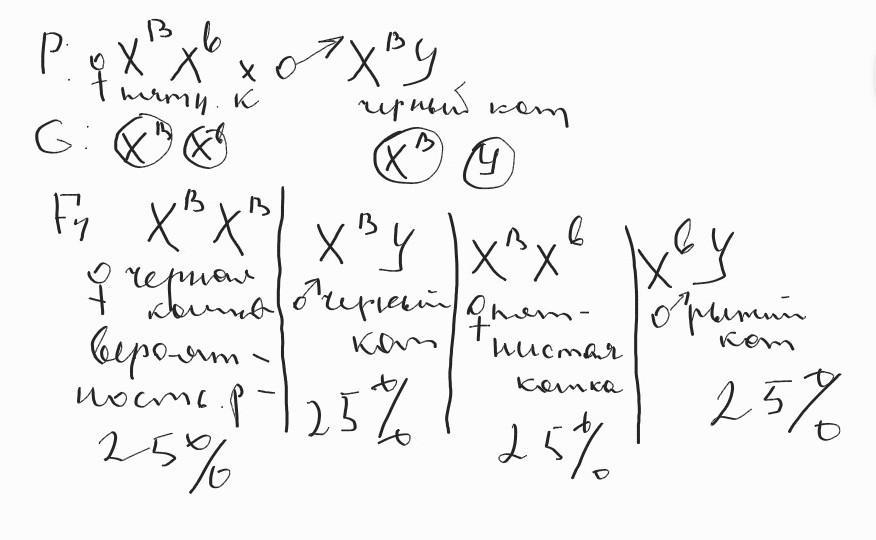 P: ♀ X^B X^b x ♂ X^B У
пятн. к черный кот
G: X^B X^b X^B У
F1 X^B X^B | X^B У | X^B X^b | X^b У
♀ черная кошка вероятность р - 25%
♂ черный кот 25%
♀ пятнистая кошка 25%
♂ рыжий кот 25%